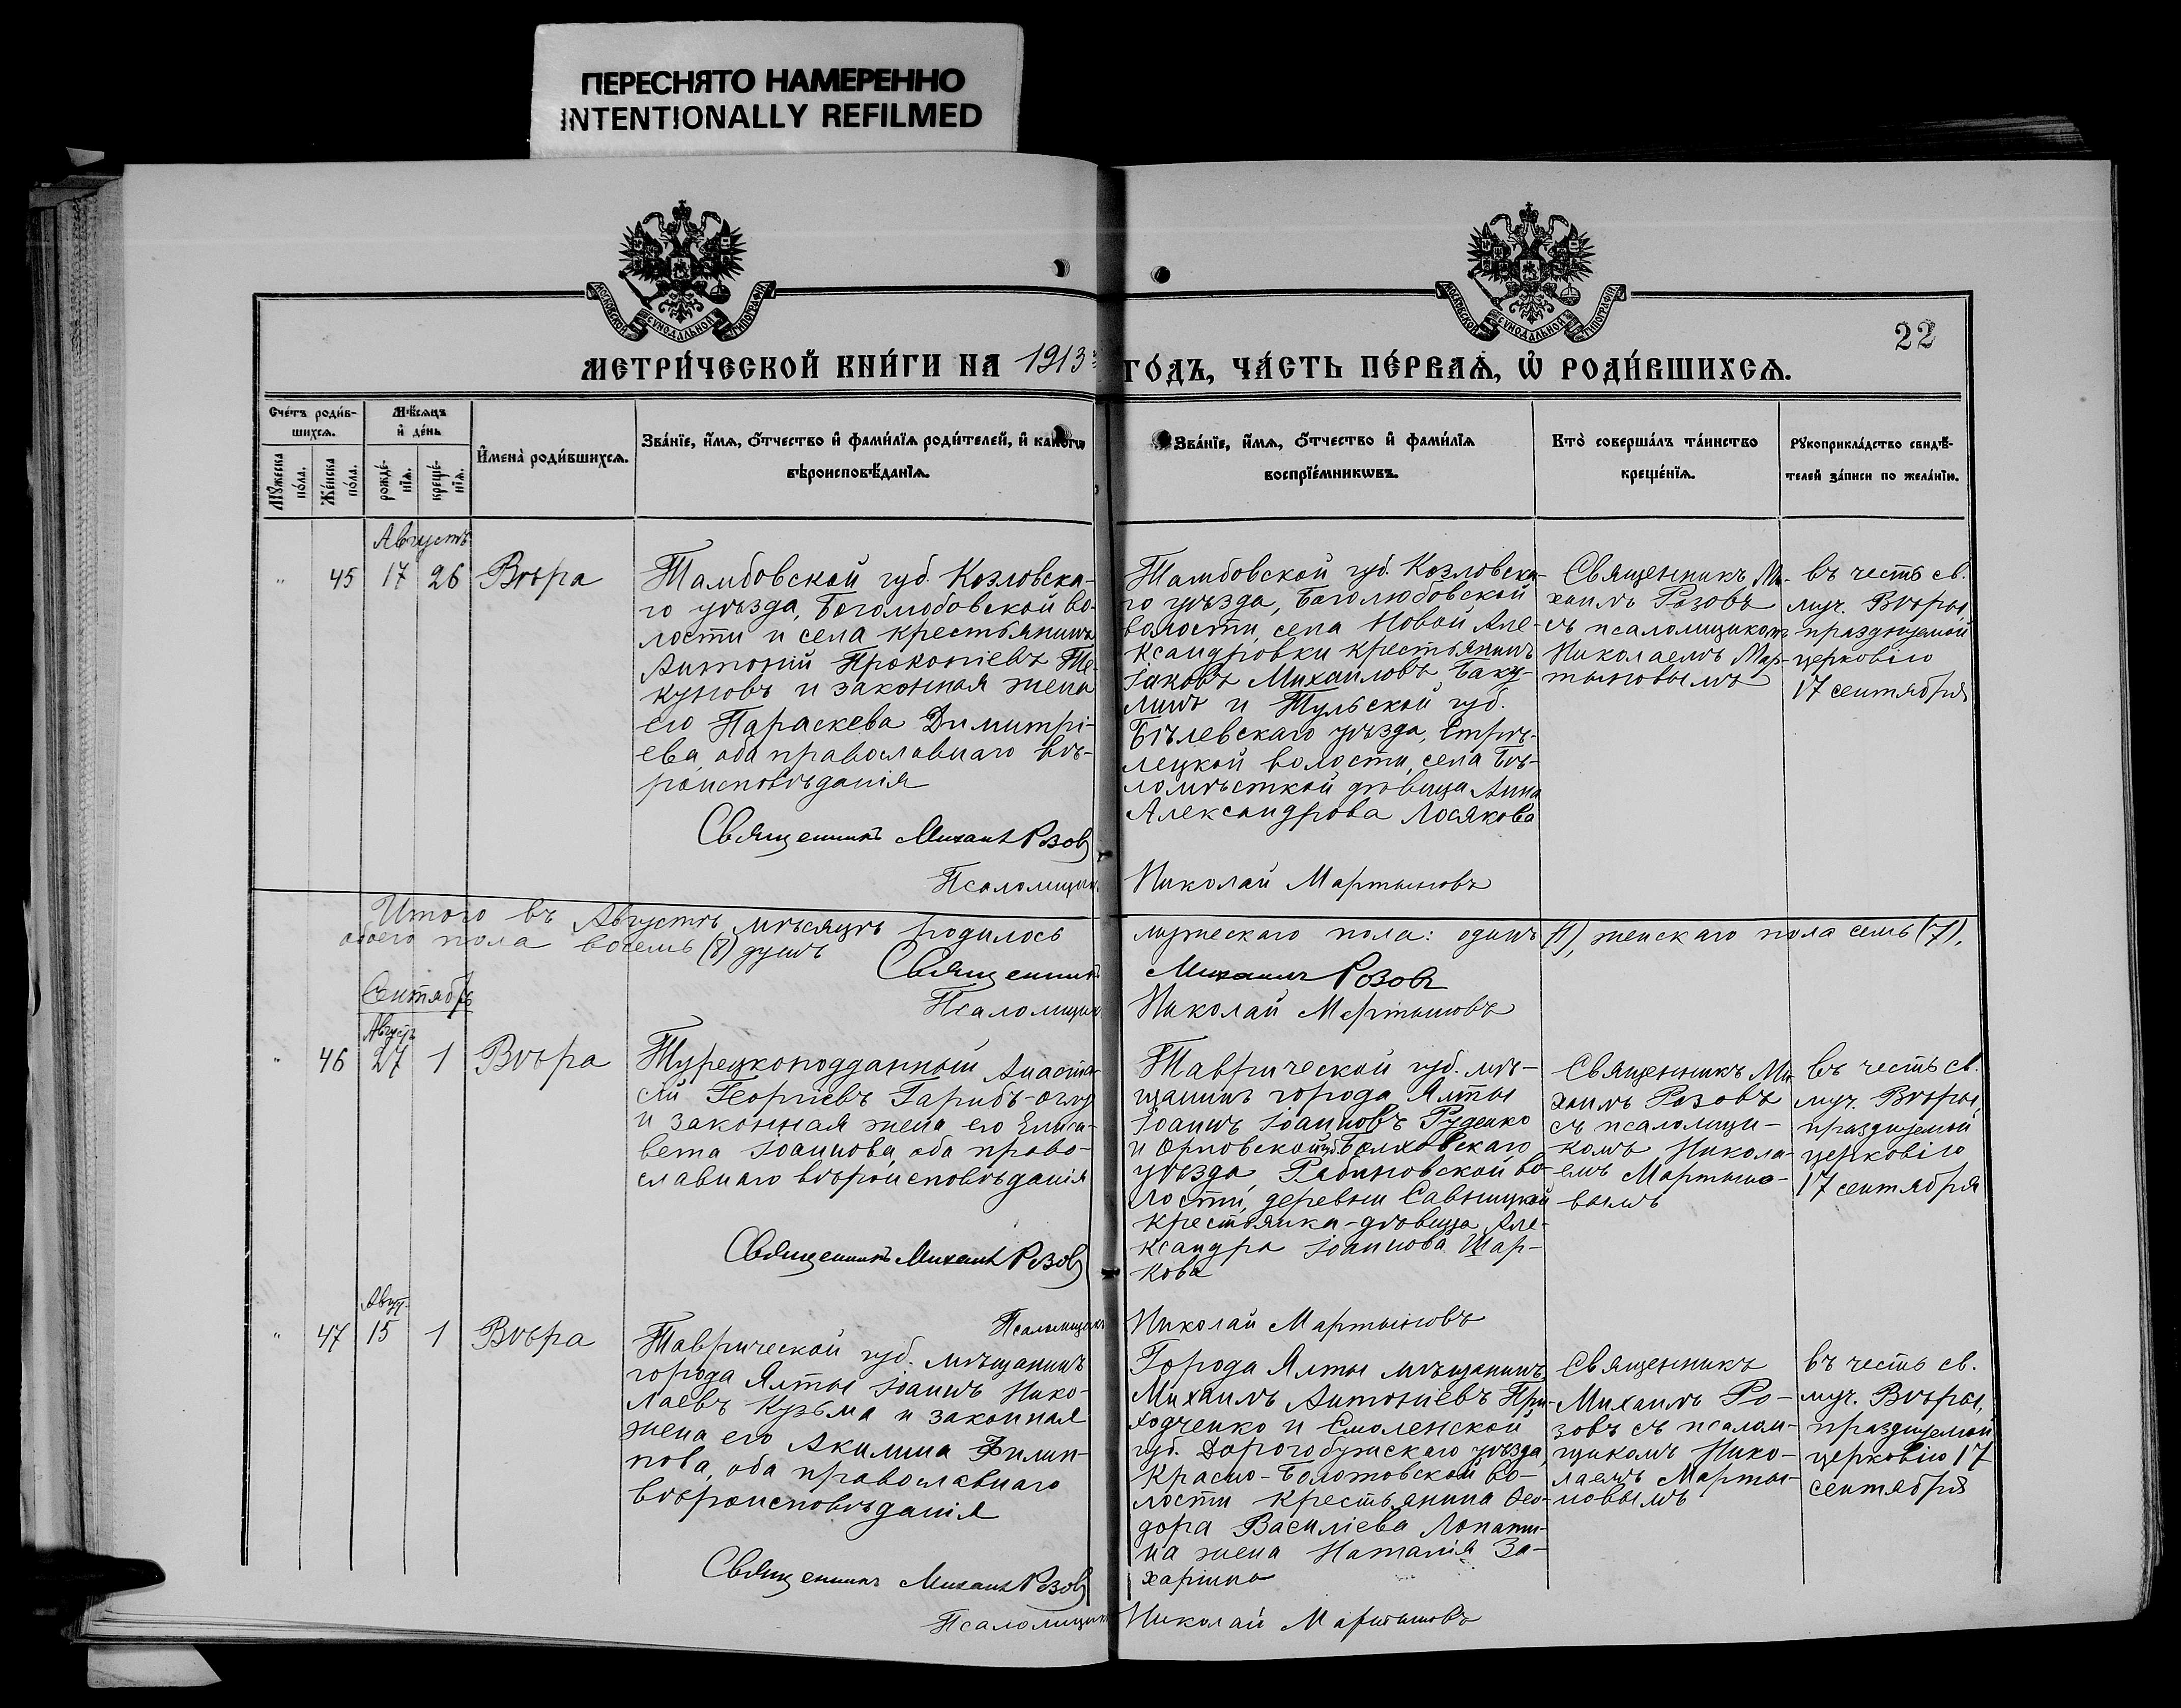 ПЕРЕСНЯТО НАМЕРЕННО
INTENTIONALLY REFILMED
МОСКОВСКОЙ СѴНОДАЛЬНОЙ ТИПОГРАФІИ
МОСКОВСКОЙ СѴНОДАЛЬНОЙ ТИПОГРАФІИ
22
МЕТРИ́ЧЕСКОЙ КНИ́ГИ НА 1913 ГО́ДЪ, ЧА́СТЬ ПЕ́РВАѦ, Ѡ҆ РОДИ́ВШИХСѦ.
Сче́тъ роди́в-
шихсѧ.
Мѣ́сѧцъ
и҆ де́нь
Мꙋ́жеска по́ла.
Же́нска по́ла.
рожде́-
нїѧ.
креще́-
нїѧ.
И҆мена̀ роди́вшихсѧ.
Зва́нїе, и҆́мѧ, ѻ҆́тчество и҆ фами́лїѧ роди́телей, и҆ како́гѡ
вѣроисповѣ́данїѧ.
Зва́нїе, и҆́мѧ, ѻ҆́тчество и҆ фами́лїѧ
воспрїе́мникѡвъ.
Кто̀ соверша́лъ та́инство
креще́нїѧ.
Рꙋкоприкла́дство свидѣ́-
телей за́писи по жела́нїю.
Августъ
" 45 17 26 Вѣра
Тамбовской губ. Козловска-
го уѣзда, Боголюбовской во-
лости и села крестьянинъ
Антоній Прокопіевъ Те-
куновъ и законная жена
его Параскева Димитрі-
ева, оба православнаго вѣ-
роисповѣданія
Священникъ Михаилъ Розовъ
Тамбовской губ. Козловска-
го уѣзда, Боголюбовской
волости, села Новой Але-
ксандровки крестьянинъ
Іаковъ Михаиловъ Баку-
линъ и Тульской губ.
Бѣлевскаго уѣзда, Стрѣ-
лецкой волости, села Бѣ-
ломѣсткой дѣвица Анна
Александрова Лосякова
Священникъ Ми-
хаилъ Розовъ
съ псаломщикомъ
Николаемъ Мар-
тыновымъ
въ честь св.
муч. Вѣры,
празднуемой
церковію
17 сентября
Псаломщикъ Николай Мартыновъ
Итого въ Августѣ мѣсяцѣ родилось мужескаго пола: одинъ (1), женскаго пола семь (7),
обоего пола восемь (8) душъ
Священникъ Михаилъ Розовъ
Псаломщикъ Николай Мартыновъ
Сентябрь
Августъ
" 46 27 1 Вѣра
Турецкоподданный Анаста-
сій Георгіевъ Гарибъ-оглу
и законная жена его Елиса-
вета Іоаннова, оба право-
славнаго вѣроисповѣданія
Священникъ Михаилъ Розовъ
Таврической губ. мѣ-
щанинъ города Ялты
Іоаннъ Іоанновъ Руденко
и Орловской губ. Болховскаго
уѣзда, Рабиновской во-
лости, деревни Савницкой
крестьянка-дѣвица Але-
ксандра Іоаннова Шар-
кова
Священникъ Ми-
хаилъ Розовъ
съ псаломщи-
комъ Никола-
емъ Мартыно-
вымъ
въ честь св.
муч. Вѣры,
празднуемой
церковію
17 сентября
Псаломщикъ Николай Мартыновъ
Авгус.
" 47 15 1 Вѣра
Таврической губ. мѣщанинъ
города Ялты Іоаннъ Нико-
лаевъ Кузьма и законная
жена его Акилина Филип-
пова, оба православнаго
вѣроисповѣданія
Священникъ Михаилъ Розовъ
Города Ялты мѣщанинъ
Михаилъ Антоніевъ При-
ходченко и Смоленской
губ. Дорогобужскаго уѣзда,
Красно-Болотовской во-
лости крестьянина Ѳео-
дора Василіева Лопати-
на жена Наталія За-
харіина
Священникъ
Михаилъ Ро-
зовъ съ псалом-
щикомъ Нико-
лаемъ Марты-
новымъ
въ честь св.
муч. Вѣры,
празднуемой
церковію 17
сентября
Псаломщикъ Николай Мартыновъ